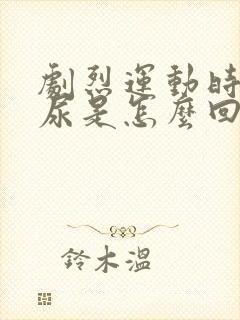 劇烈運動時
尿是怎麼回
鈴木溫